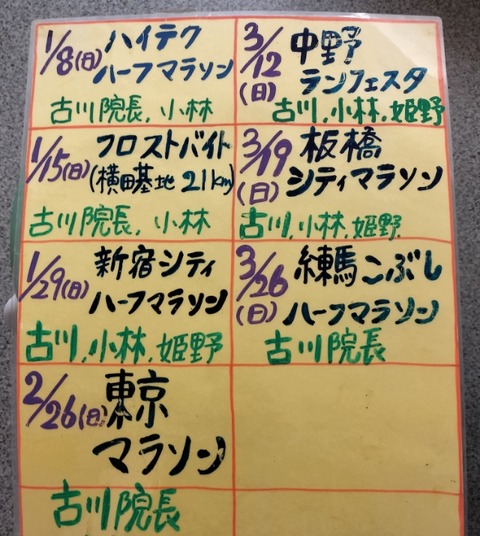 1/8(日) ハイテク
ハーフマラソン
古川院長, 小林
1/15(日) フロストバイト
(横田基地 21km)
古川院長, 小林
1/29(日) 新宿シティ
ハーフマラソン
古川, 小林, 姫野
2/26(日) 東京
マラソン
古川院長
3/12(日) 中野
ランフェスタ
古川, 小林, 姫野
3/19(日) 板橋
シティマラソン
古川, 小林, 姫野
3/26(日) 練馬こぶし
ハーフマラソン
古川院長